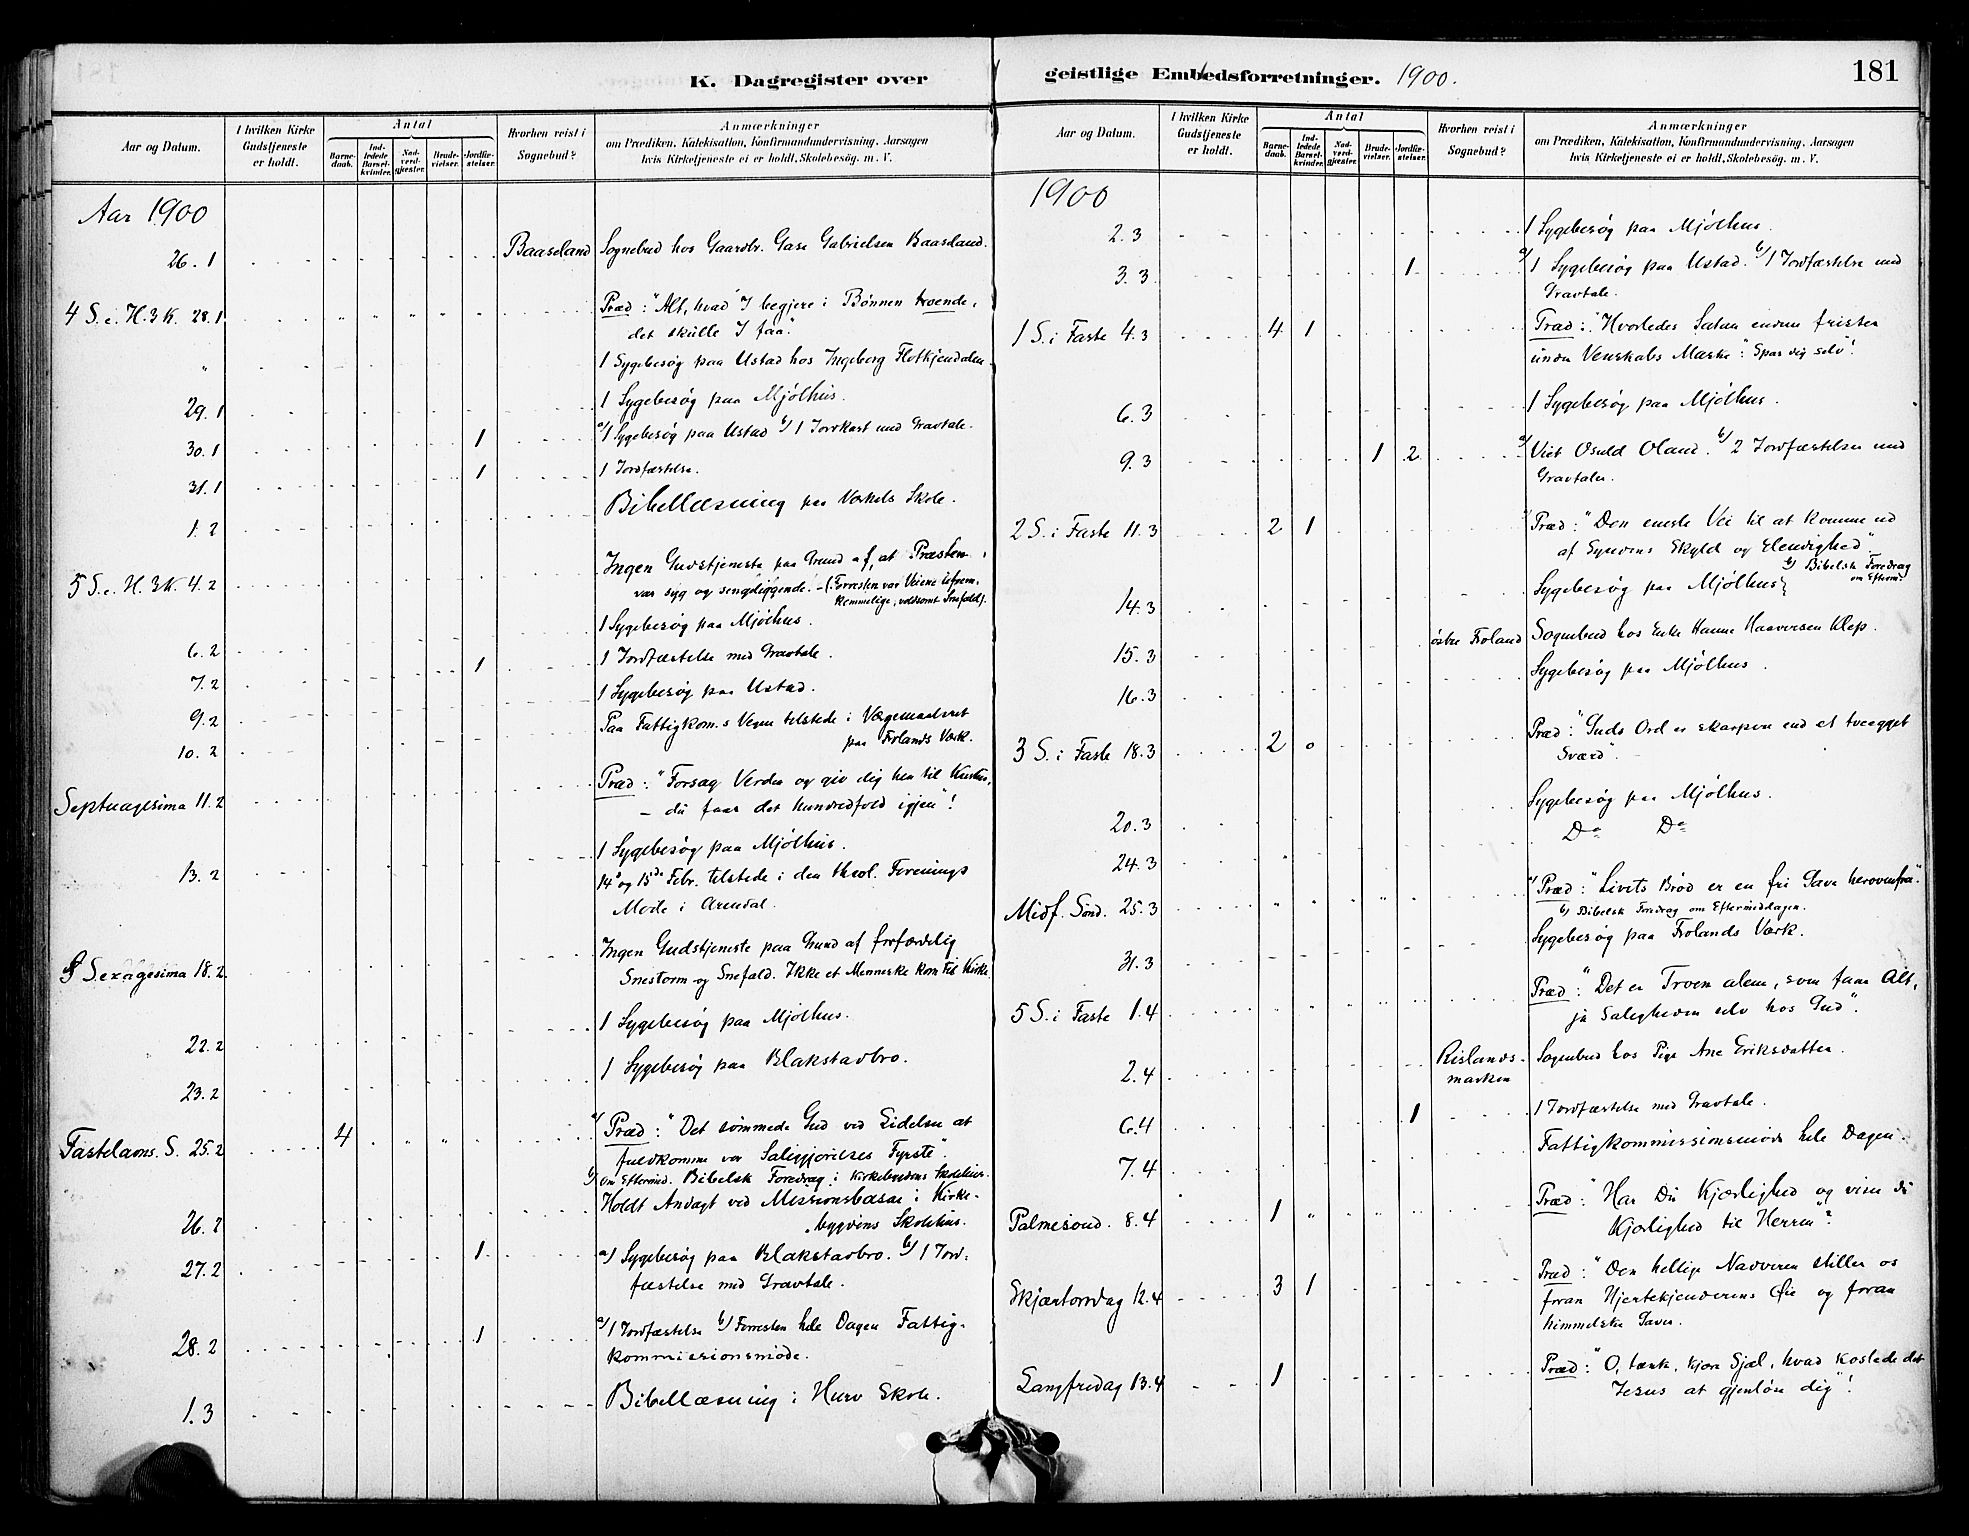 K. Dagregister over
Aar og Datum.
I hvilken Kirke Gudstjeneste er holdt.
Antal
Barnedaab.
Indledede Barselkvinder.
Nadverdgjæster.
Brudevielser.
Jordfæstelser.
Hvorhen reist i Sognebud?
Anmærkninger
om Prædiken, Katekisation, Konfirmandundervisning, Aarsagen
hvis Kirketjeneste ei er holdt, Skolebesög. m. V.
Aar 1900
26. 1 Baaseland Sognebud hos Gaardbr. Gabrielsen Baasland.
4 S. e. H. 3 K. 28.1 Præd: "Alt, hvad I begjere i Bønnen troende,
det skulle I faa".
" 1 Sygebesög paa Ustad hos Ingeborg Flotkjendalen.
29. 1 1 Sygebesög paa Mjölhus.
30. 1 1 a/ 1 Sygebesög paa Ustad b/ 1 Jordkast med Gravtale.
31. 1 1 1 Jordfæstelse.
1. 2 Bibellæsning paa Værkets Skole.
5 S. e. H. 3 K. 4. 2 Ingen Gudstjeneste paa Grund af, at Præsten
var syg og sengeliggende. - (Forresten var Veiene ufrem-
kommelige, voldsomt Snefald).
6. 2 1 Sygebesög paa Mjölhus.
7. 2 1 1 Jordfæstelse med Gravtale.
9. 2 1 Sygebesög paa Ustad.
10. 2 Paa Fattigkom.s Vegne tilstede i Værgemaalsret
paa Frolands Værk.
Septuagesima 11. 2 Præd: "Forsag Verden og giv dig hen til Kristus,
- du faar det hundredfold igjen"!
13. 2 1 Sygebesög paa Mjölhus.
14de og 15de Febr. tilstede i den theol. Forenings
Møde i Arendal.
Sexagesima 18. 2 Ingen Gudstjeneste paa Grund af forfærdelig
Snestorm og Snefald. Ikke et Menneske kom til Kirke.
22. 2 1 Sygebesög paa Mjölhus.
23. 2 1 Sygebesög paa Blakstadbro.
Fastelavns. S. 25. 2 4 a/ Præd: "Det sömmede Gud ved Lidelser at
fuldkomme vor Saliggjörelses Fyrste".
b/ om Eftermd. Bibelsk Foredrag i Kirkebygdens Skolehus.
26. 2 Holdt Andagt ved Missionsbasar i Kirke-
bygdens Skolehus.
27. 2 1 a/ Sygebesög paa Blakstadbro. b/ 1 Jord-
fæstelse med Gravtale.
28. 2 1 a/ 1 Jordfæstelse b/ Forresten hele Dagen Fattig-
kommissionsmöde.
1. 3 Bibellæsning i Hurv Skole.
geistlige Embedsforretninger. 1900.
181
Aar og Datum.
I hvilken Kirke Gudstjeneste er holdt.
Antal
Barnedaab.
Indledede Barselkvinder.
Nadverdgjæster.
Brudevielser.
Jordfæstelser.
Hvorhen reist i Sognebud?
Anmærkninger
om Prædiken, Katekisation, Konfirmandundervisning, Aarsagen
hvis Kirketjeneste ei er holdt, Skolebesög. m. V.
1900
2. 3 1 Sygebesög paa Mjölhus.
3. 3 1 a/ 1 Sygebesög paa Ustad. b/ 1 Jordfæstelse med
Gravtale.
1 S. i Faste 4. 3 4 1 Præd: "Hvorledes Satan endnu frister
under Venskabs Maske": Spar dig selv!
6. 3 1 Sygebesög paa Mjölhus.
9. 3 1 2 a/ Viet Osuld Oland. b/ 2 Jordfæstelser med
Gravtaler.
2 S. i Faste 11. 3 2 1 a/ Præd: "Den eneste Vei til at komme ud
af Syndens Skyld og Elendighed".
b/ Bibelsk Foredrag
om Efterm.
14. 3 Sygebesög paa Mjölhus
15. 3 östre Froland Sognebud hos Enke Hanne Haaversen Klep.
16. 3 Sygebesög paa Mjölhus.
3 S. i Faste 18. 3 2 0 Præd: "Guds Ord er skarpere end et tveegget
Sværd". -
20. 3 Sygebesög paa Mjölhus.
24. 3 Do Do
Midf. Sönd. 25. 3 a/ Præd: "Livets Bröd er en fri Gave herovenfra".
b/ Bibelsk Foredrag om Eftermiddagen.
31. 3 Sygebesög paa Frolands Værk.
5 S. i Faste 1. 4 Præd: "Det er Troen alene, som faar Alt,
ja Saligheden selv hos Gud".
2. 4 Rislands-
marken Sognebud hos Pige Ane Eriksdatter.
6. 4 1 1 Jordfæstelse med Gravtale.
7. 4 Fattigkommissionsmöde hele Dagen.
Palmesönd. 8. 4 1 Præd: "Har Du Kjærlighed og viser du
Kjærlighed til Herren"?
Skjærtorsdag 12. 4 3 1 Præd: "Den hellige Nadveren stiller os
foran Hjertekjenderens Öie og foran
himmelske Gaver.
Langfredag 13. 4 1 Præd: "O, tænk, kjære Sjæl, hvad kostede det
Jesus at gjenlöse dig"!